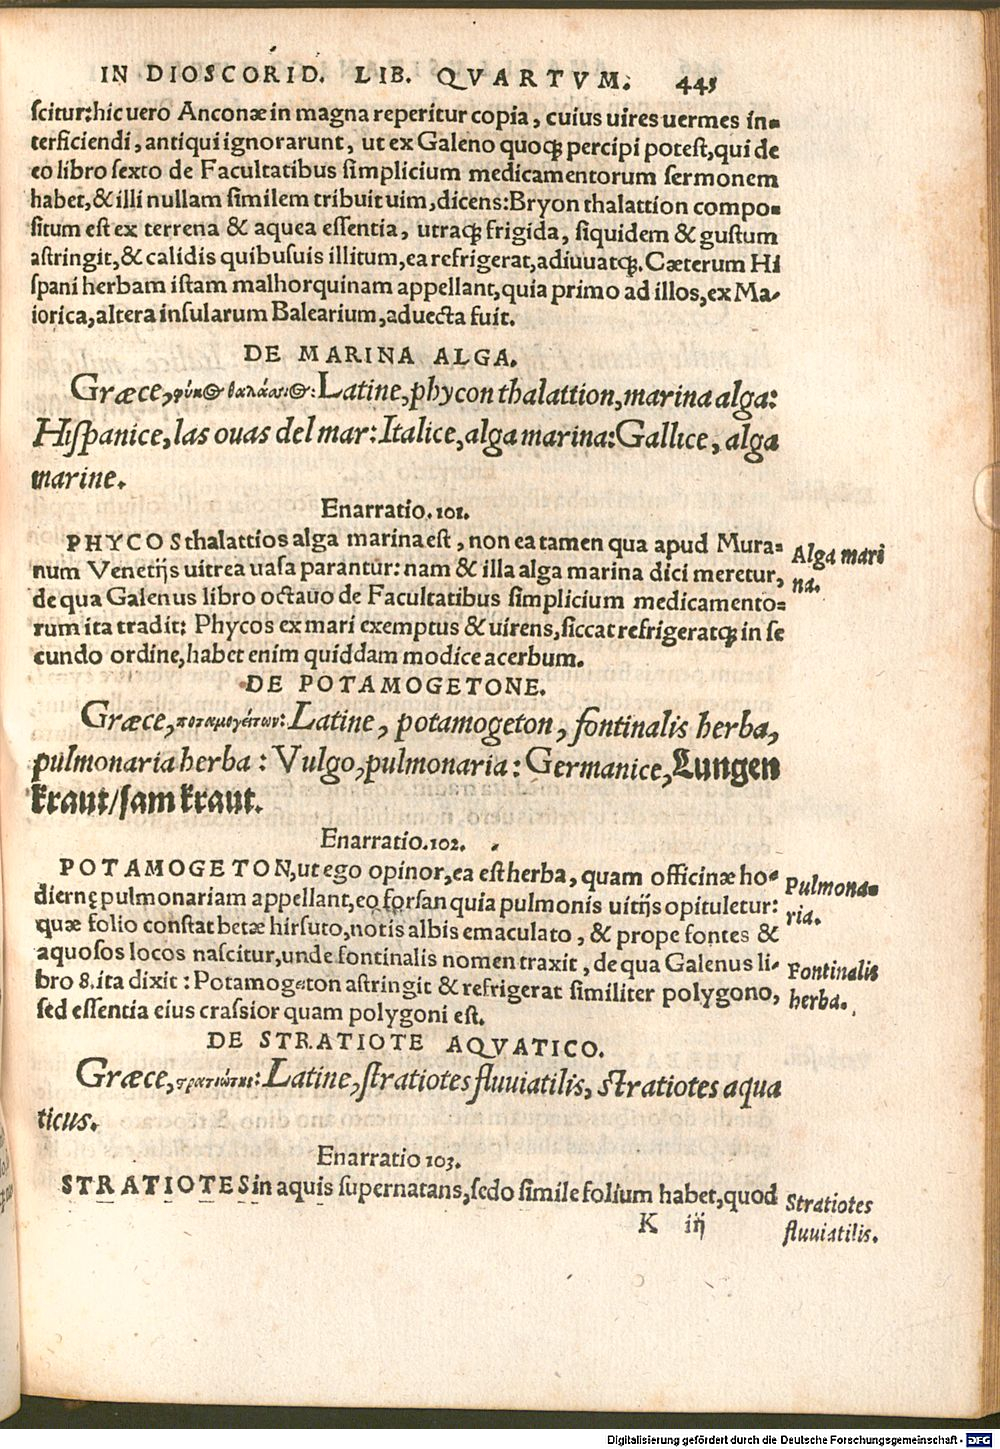 IN DIOSCORID. LIB. QVARTVM. 445
scitur: hic uero Anconæ in magna reperitur copia, cuius uires uermes in-
terficiendi, antiqui ignorarunt, ut ex Galeno quoqꝫ percipi potest, qui de
eo libro sexto de Facultatibus simplicium medicamentorum sermonem
habet, & illi nullam similem tribuit uim, dicens: Bryon thalattion compo-
situm est ex terrena & aquea essentia, utraqꝫ frigida, siquidem & gustum
astringit, & calidis quibusuis illitum, ea refrigerat, adiuuatqꝫ. Cæterum Hi
spani herbam istam malhorquinam appellant, quia primo ad illos, ex Ma-
iorica, altera insularum Balearium, aduecta fuit.
DE MARINA ALGA.
Græce, φῦκος θαλάσσιος: Latine, phycon thalattion, marina alga:
Hispanice, las ouas del mar: Italice, alga marina: Gallice, alga
marine.
Enarratio. 101.
PHYCOS thalattios alga marina est, non ea tamen qua apud Mura-
num Venetijs uitrea uasa parantur: nam & illa alga marina dici meretur,
de qua Galenus libro octauo de Facultatibus simplicium medicamento-
rum ita tradit: Phycos ex mari exemptus & uirens, siccat refrigeratqꝫ in se
cundo ordine, habet enim quiddam modice acerbum.
Alga mari
na.
DE POTAMOGETONE.
Græce, ποταμογείτων: Latine, potamogeton, fontinalis herba,
pulmonaria herba: Vulgo, pulmonaria: Germanice, Lungen
kraut/sam kraut.
Enarratio. 102.
POTAMOGETON, ut ego opinor, ea est herba, quam officinæ ho-
diernę pulmonariam appellant, eo forsan quia pulmonis uitijs opituletur:
quæ folio constat betæ hirsuto, notis albis emaculato, & prope fontes &
aquosos locos nascitur, unde fontinalis nomen traxit, de qua Galenus li-
bro 8. ita dixit: Potamogeton astringit & refrigerat similiter polygono,
sed essentia eius crassior quam polygoni est.
Pulmona-
ria.
Fontinalis
herba.
DE STRATIOTE AQVATICO.
Græce, στρατιώτης: Latine, stratiotes fluuiatilis, stratiotes aqua
ticus.
Enarratio 103.
STRATIOTES in aquis supernatans, sedo simile folium habet, quod
Stratiotes
fluuiatilis.
K iij
Digitalisierung gefördert durch die Deutsche Forschungsgemeinschaft - DFG